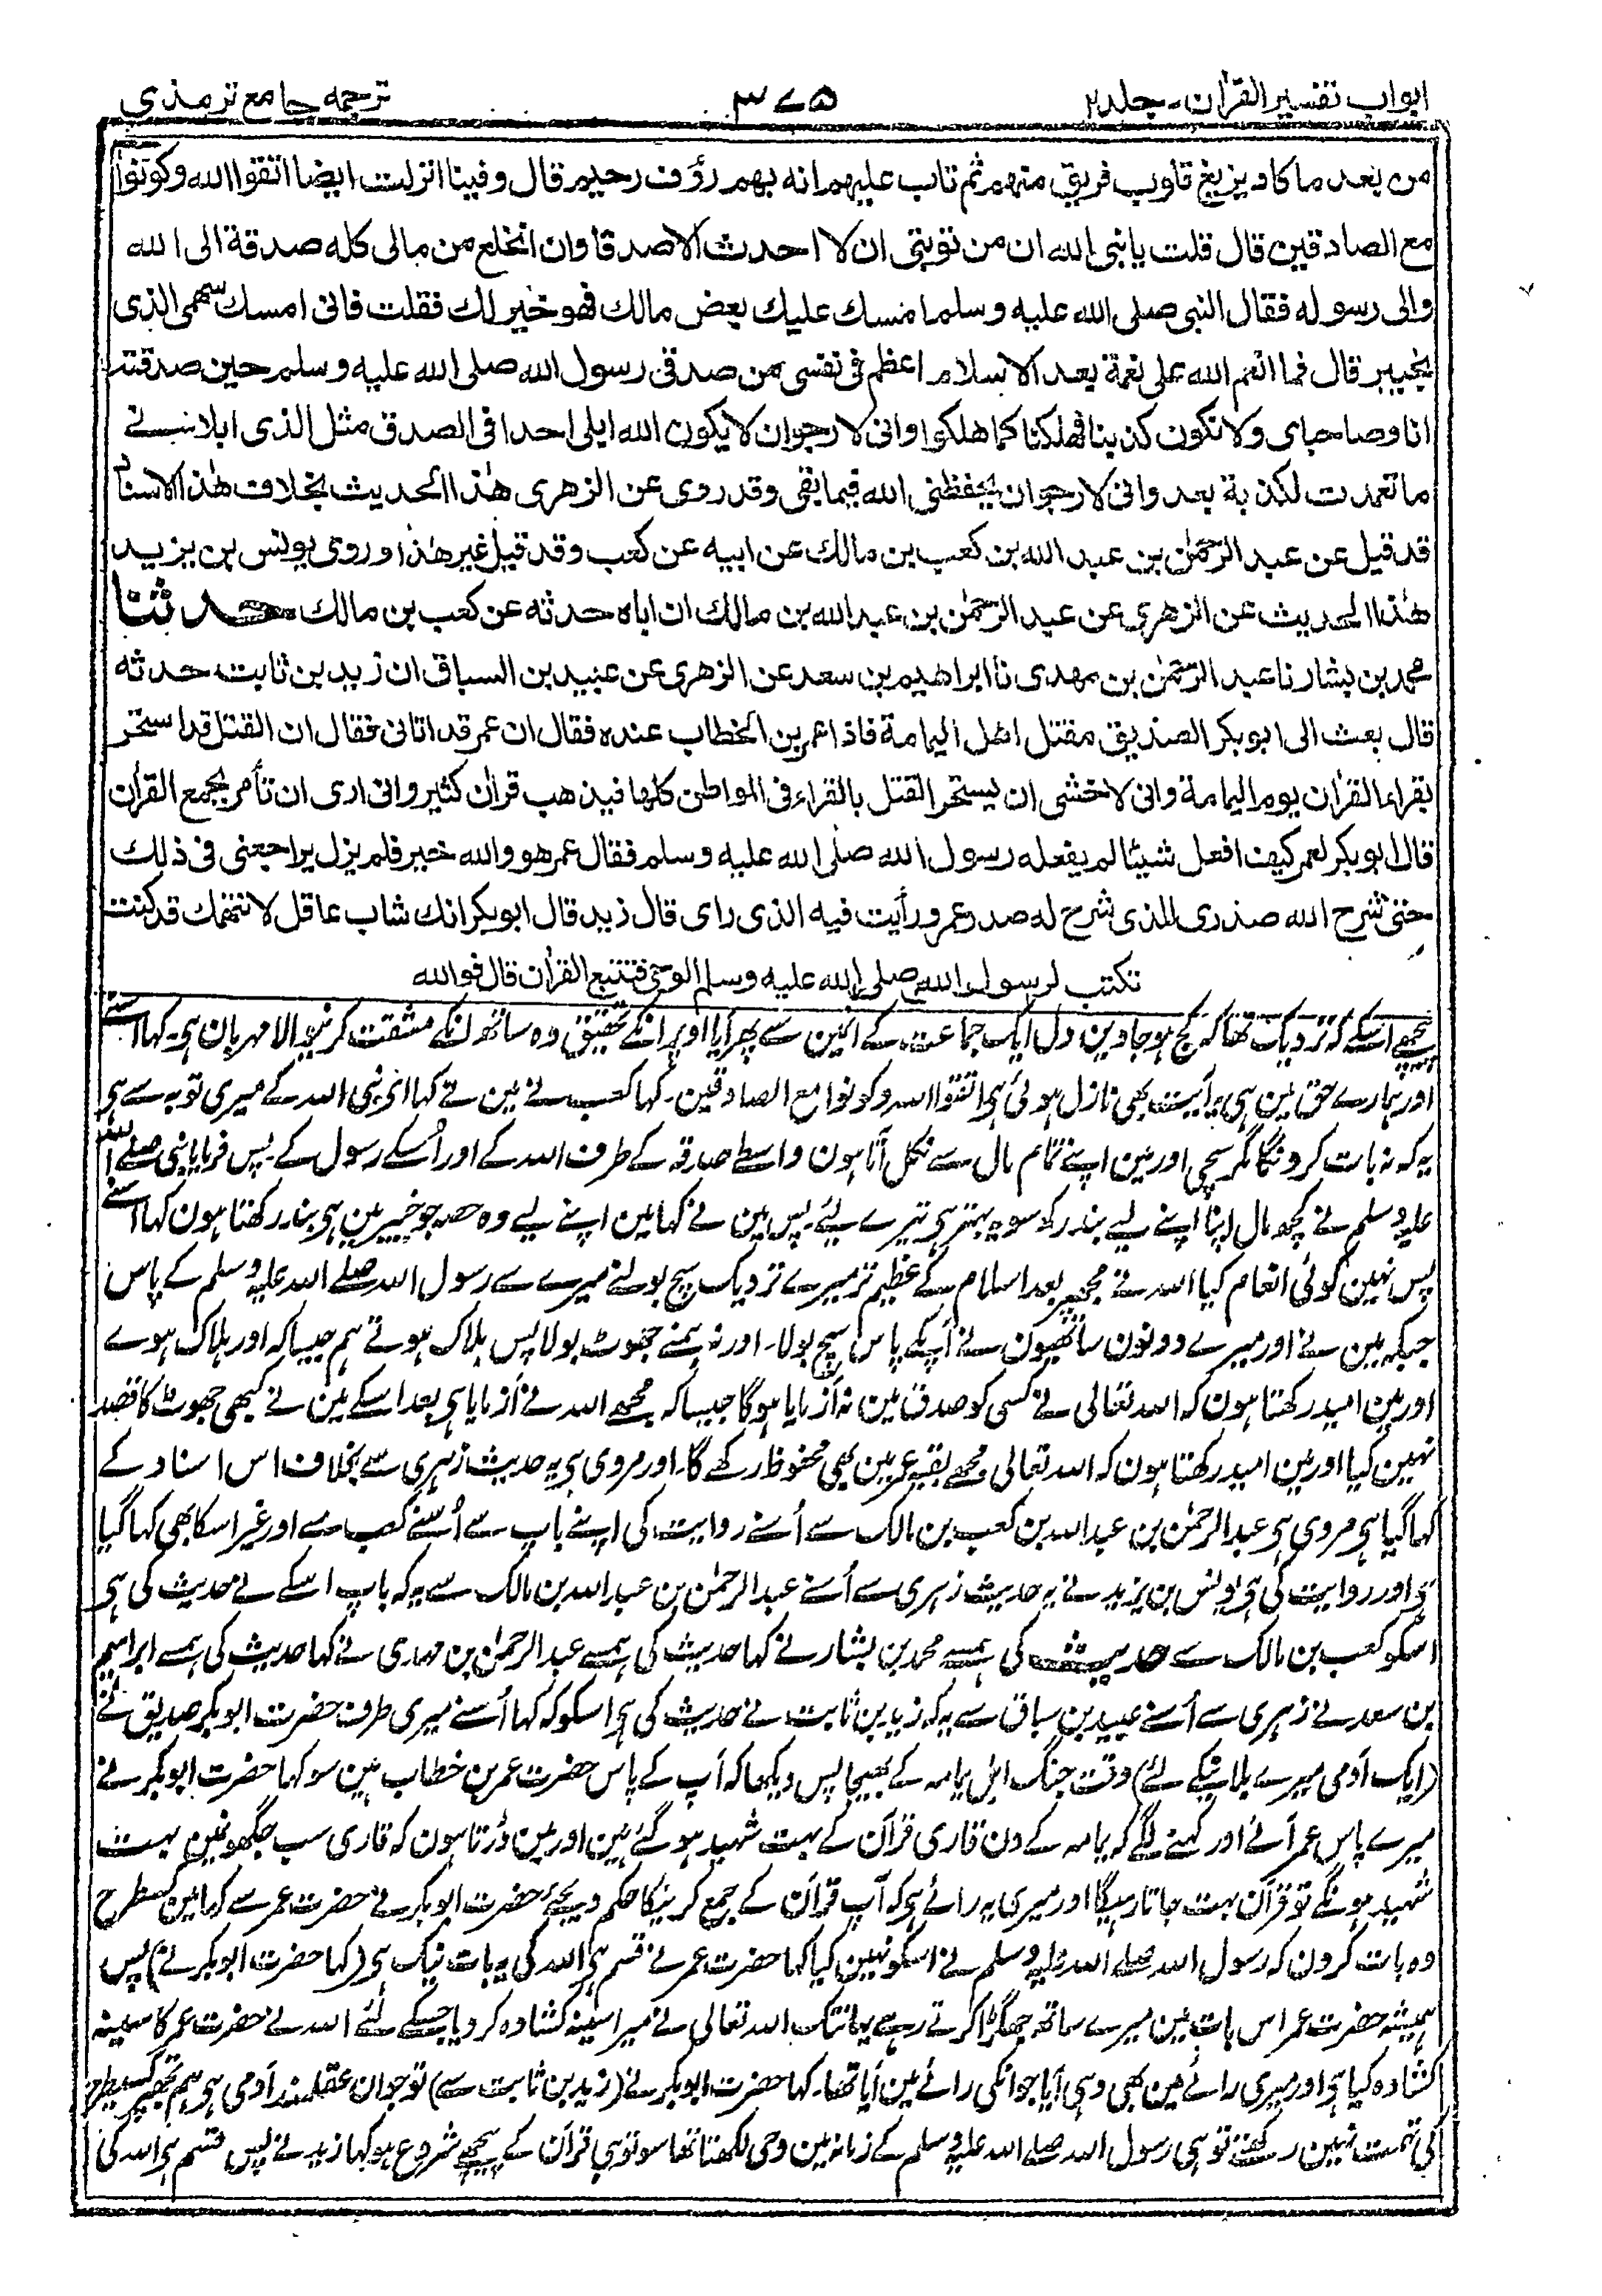 ابواب تفسیر القرآن - جلد ۲
۳۷۵
ترجمہ جامع ترمذی
من بعد ما كاد يزيغ قلوب فريق منهم ثم تاب عليهم انه بهم رؤف رحيم قال وفينا انزلت ايضا اتقوا الله وكونوا
مع الصادقين قال قلت يا نبى الله ان من توبتى ان لا احدث الا صدقا وان انخلع من مالى كله صدقة الى الله
والى رسوله فقال النبى صلى الله عليه وسلم امسك عليك بعض مالك فهو خير لك فقلت فانى امسك سهمى الذى
بخيبر قال فما انعم الله على نعمة بعد الاسلام اعظم فى نفسى من صدقى رسول الله صلى الله عليه وسلم حين صدقته
انا وصاحباى ولا نكون كذبنا فهلكنا كما هلكوا وانى لارجو ان لا يكون الله ابلى احدا فى الصدق مثل الذى ابلانى
ما تعمدت لكذبة بعد وانى لارجو ان يحفظنى الله فيما بقى وقد روى عن الزهرى هٰذا الحديث بخلاف هٰذا الاسناد
قد قيل عن عبد الرحمٰن بن عبد الله بن كعب بن مالك عن ابيه عن كعب وقد قيل غير هٰذا وروى يونس بن يزيد
هٰذا الحديث عن الزهرى عن عبد الرحمٰن بن عبد الله بن مالك ان اباه حدثه عن كعب بن مالك حدثنا
محمد بن بشار نا عبد الرحمٰن بن مهدى نا ابراهيم بن سعد عن الزهرى عن عبيد بن السباق ان زيد بن ثابت حدثه
قال بعث الى ابو بكر الصديق مقتل اهل اليمامة فاذا عمر بن الخطاب عنده فقال ان عمر قد اتانى فقال ان القتل قد استحر
بقراء القرآن يوم اليمامة وانى لاخشى ان يستحر القتل بالقراء فى المواطن كلها فيذهب قرآن كثير وانى ارى ان تأمر بجمع القرآن
قال ابو بكر لعمر كيف افعل شيئا لم يفعله رسول الله صلى الله عليه وسلم فقال عمر هو والله خير فلم يزل يراجعنى فى ذلك
حتى شرح الله صدرى للذى شرح له صدر عمر ورأيت فيه الذى راى قال زيد قال ابو بكر انك شاب عاقل لا نتهمك قد كنت
تكتب لرسول الله صلى الله عليه وسلم الوحى فتتبع القرآن قال فوالله
پیچھے اسکے کہ نزدیک تھا کہ کج ہو جاوین دل ایک جماعت کے انمین سے پھر آیا اوپر انکے تحقیق وہ ساتھ انکے مشقت کرنیوالا مہربان ہی۔ کہا اسنے
اور ہمارے حق مین ہی یہ آیت بھی نازل ہوئی ہی اتقوا اللہ وکونوا مع الصادقین۔ کہا کعب نے مین نے کہا ای نبی اللہ کے میری توبہ سے ہی
یہ کہ نہ بات کرونگا مگر سچی اور مین اپنے تمام مال سے نکل آتا ہون واسطے صدقہ کے طرف اللہ کے اور اُسکے رسول کے۔ پس فرمایا نبی صلے اللہ
علیہ وسلم نے کچھ مال اپنا اپنے لیے بند رکھ سو یہ بہتر ہی تیرے لیئے۔ پس مین نے کہا مین اپنے لیے وہ حصہ جو خیبر مین ہی بند رکھتا ہون کہا اسنے
پس نہین کوئی انعام کیا اللہ نے مجھپر بعد اسلام کے عظیم تر میرے نزدیک سچ بولنے میرے سے رسول اللہ صلے اللہ علیہ وسلم کے پاس
جبکہ مین نے اور میرے دونون ساتھیون نے آپکے پاس سچ بولا۔ اور نہ ہمنے جھوٹ بولا پس ہلاک ہوتے ہم جیسا کہ اور ہلاک ہوے
اور مین امید رکھتا ہون کہ اللہ تعالی نے کسی کو صدق مین نہ آزمایا ہوگا جیسا کہ مجھے اللہ نے آزمایا ہی بعد اسکے مین نے کبھی جھوٹ کا قصد
نہین کیا اور مین امید رکھتا ہون کہ اللہ تعالی مجھے بقیہ عمر مین بھی محفوظ رکھے گا۔ اور مروی ہی یہ حدیث زہری سے بخلاف اس اسناد کے
کہا گیا ہی مروی ہی عبد الرحمٰن بن عبد اللہ بن کعب بن مالک سے اُسنے روایت کی اپنے باپ سے اُسنے کعب سے اور غیر اسکا بھی کہا گیا
ہی اور روایت کی ہی یونس بن یزید نے یہ حدیث زہری سے اُسنے عبد الرحمٰن بن عبد اللہ بن مالک سے یہ کہ باپ اسکے نے حدیث کی ہی
اسکو کعب بن مالک سے حدیث کی ہمسے محمد بن بشار نے کہا حدیث کی ہمسے عبد الرحمٰن بن مہدی نے کہا حدیث کی ہمسے ابراہیم
بن سعد نے زہری سے اُسنے عبید بن سباق سے یہ کہ زید بن ثابت نے حدیث کی ہی اسکو کہ کہا اُسنے میری طرف حضرت ابو بکر صدیق نے
(ایک آدمی میرے بلانیکے لئے) وقت جنگ اہل یمامہ کے بھیجا پس دیکھا کہ آپ کے پاس حضرت عمر بن خطاب ہین سو کہا حضرت ابو بکر نے
میرے پاس عمر آئے اور کہنے لگے کہ یمامہ کے دن قاری قرآن کے بہت شہید ہو گئے ہین اور مین ڈرتا ہون کہ قاری سب جگھونمین بہت
شہید ہونگے تو قرآن بہت جاتا رہیگا اور میری یہ رائے ہی کہ آپ قرآن کے جمع کرنیکا حکم دیجیے حضرت ابو بکر نے حضرت عمر سے کہا مین کسطرح
وہ بات کرون کہ رسول اللہ صلے اللہ علیہ وسلم نے اسکو نہین کیا کہا حضرت عمر نے قسم ہی اللہ کی یہ بات نیک ہی (کہا حضرت ابو بکر نے) پس
ہمیشہ حضرت عمر اس بات مین میرے ساتھ جھگڑا کرتے رہے یہانتک اللہ تعالی نے میرا سینہ کشادہ کر دیا جسکے لئے اللہ نے حضرت عمر کا سینہ
کشادہ کیا ہی اور میری رائے مین بھی وہی آیا جو انکی رائے مین آیا تھا۔ کہا حضرت ابو بکر نے (زید بن ثابت سے) تو جوان عقلمند آدمی ہی ہم تجھپر کسیطرح
کی تہمت نہین رکھتے تو ہی رسول اللہ صلے اللہ علیہ وسلم کے زمانہ مین وحی لکھتا تھا سو تو ہی قرآن کے پیچھے شروع ہو کہا زید نے پس قسم ہی اللہ کی